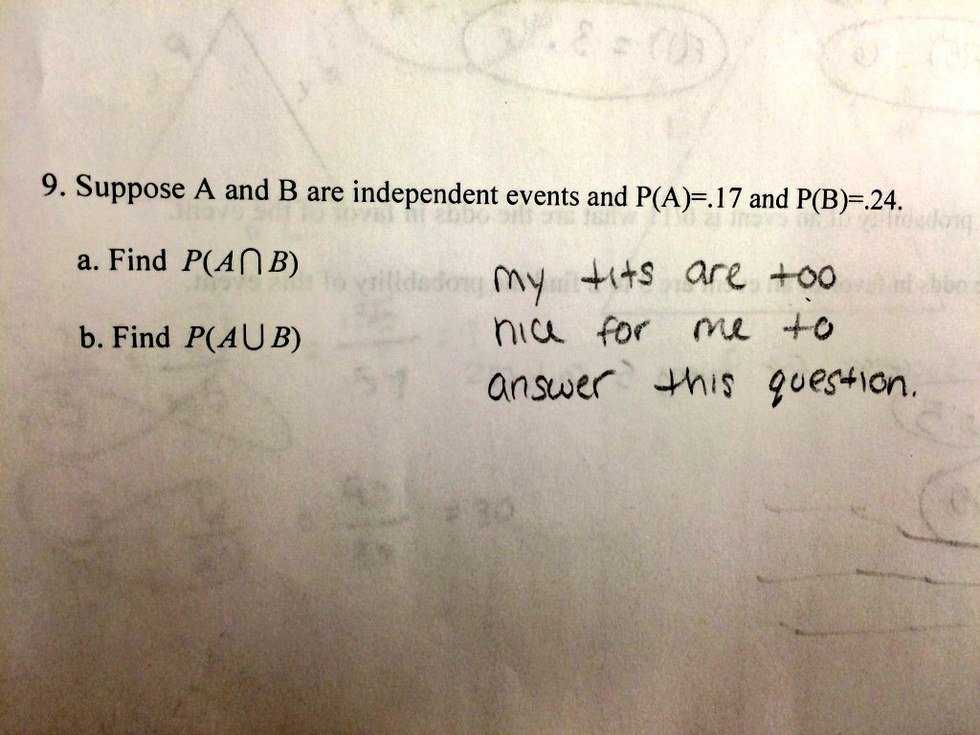 9. Suppose A and B are independent events and P(A)=.17 and P(B)=.24.
a. Find P(A∩B)
my tits are too
b. Find P(A∪B)
nice for me to
answer this question.